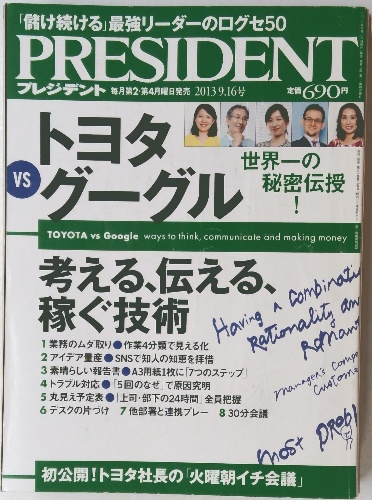 「儲け続ける」最強リーダーのログセ50
PRESIDENT
プレジデント 毎月第2・第4月曜日発売 2013 9.16号 定価690円
トヨタ
vs
グーグル
世界一の
秘密伝授
!
TOYOTA vs Google ways to think, communicate and making money
考える、伝える、
稼ぐ技術
1 業務のムダ取り●作業4分類で見える化
2 アイデア量産●SNSで知人の知恵を拝借
3 素晴らしい報告書●A3用紙1枚に「7つのステップ」
4 トラブル対応●「5回のなぜ」で原因究明
5 丸見え予定表●「上司・部下の24時間」全員把握
6 デスクの片づけ 7 他部署と連携プレー 8 30分会議
Having a Combinati
Rationality an
Roman
manager's Compe
Custome
most Prob
初公開!トヨタ社長の「火曜朝イチ会議」